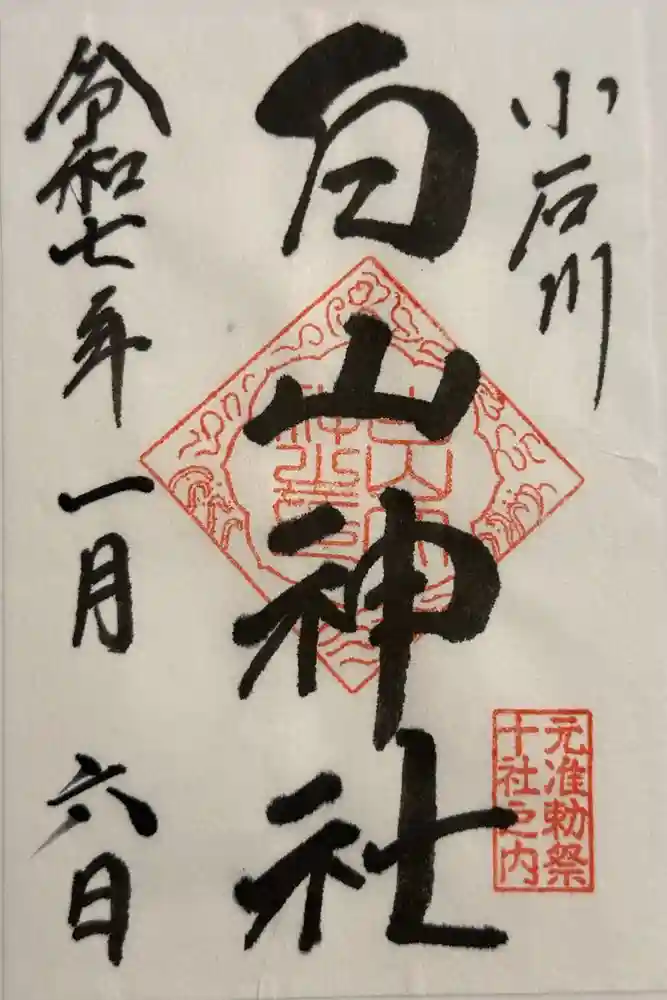 小石川
白山神社
令和七年一月六日
元准勅祭
十社之内